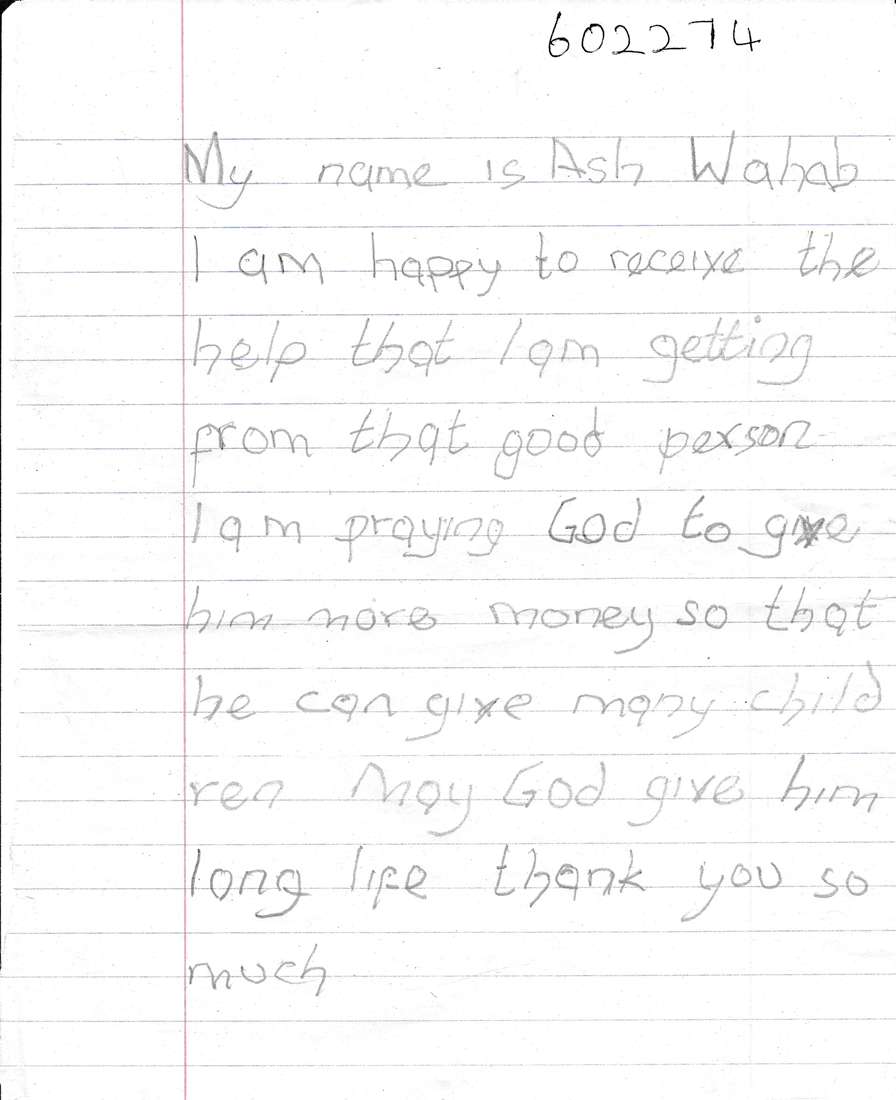 602274
My name is Ash Wahab
I am happy to receive the
help that I am getting
from that good person
I am praying God to give
him more money so that
he can give many child
ren May God give him
long life thank you so
much